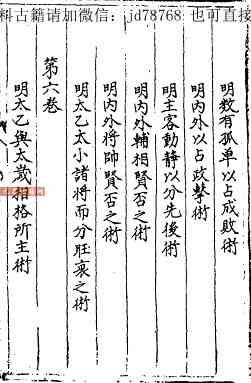 料古籍请加微信：jd78768 也可直接
明数有孤单以占成敗術
明内外以占政擊術
明主客動静以分先後術
明内外輔相賢否之術
明内外将帥賢否之術
明太乙太小諸将而分旺衰之術
第六卷
明太乙與太歲相格所主術